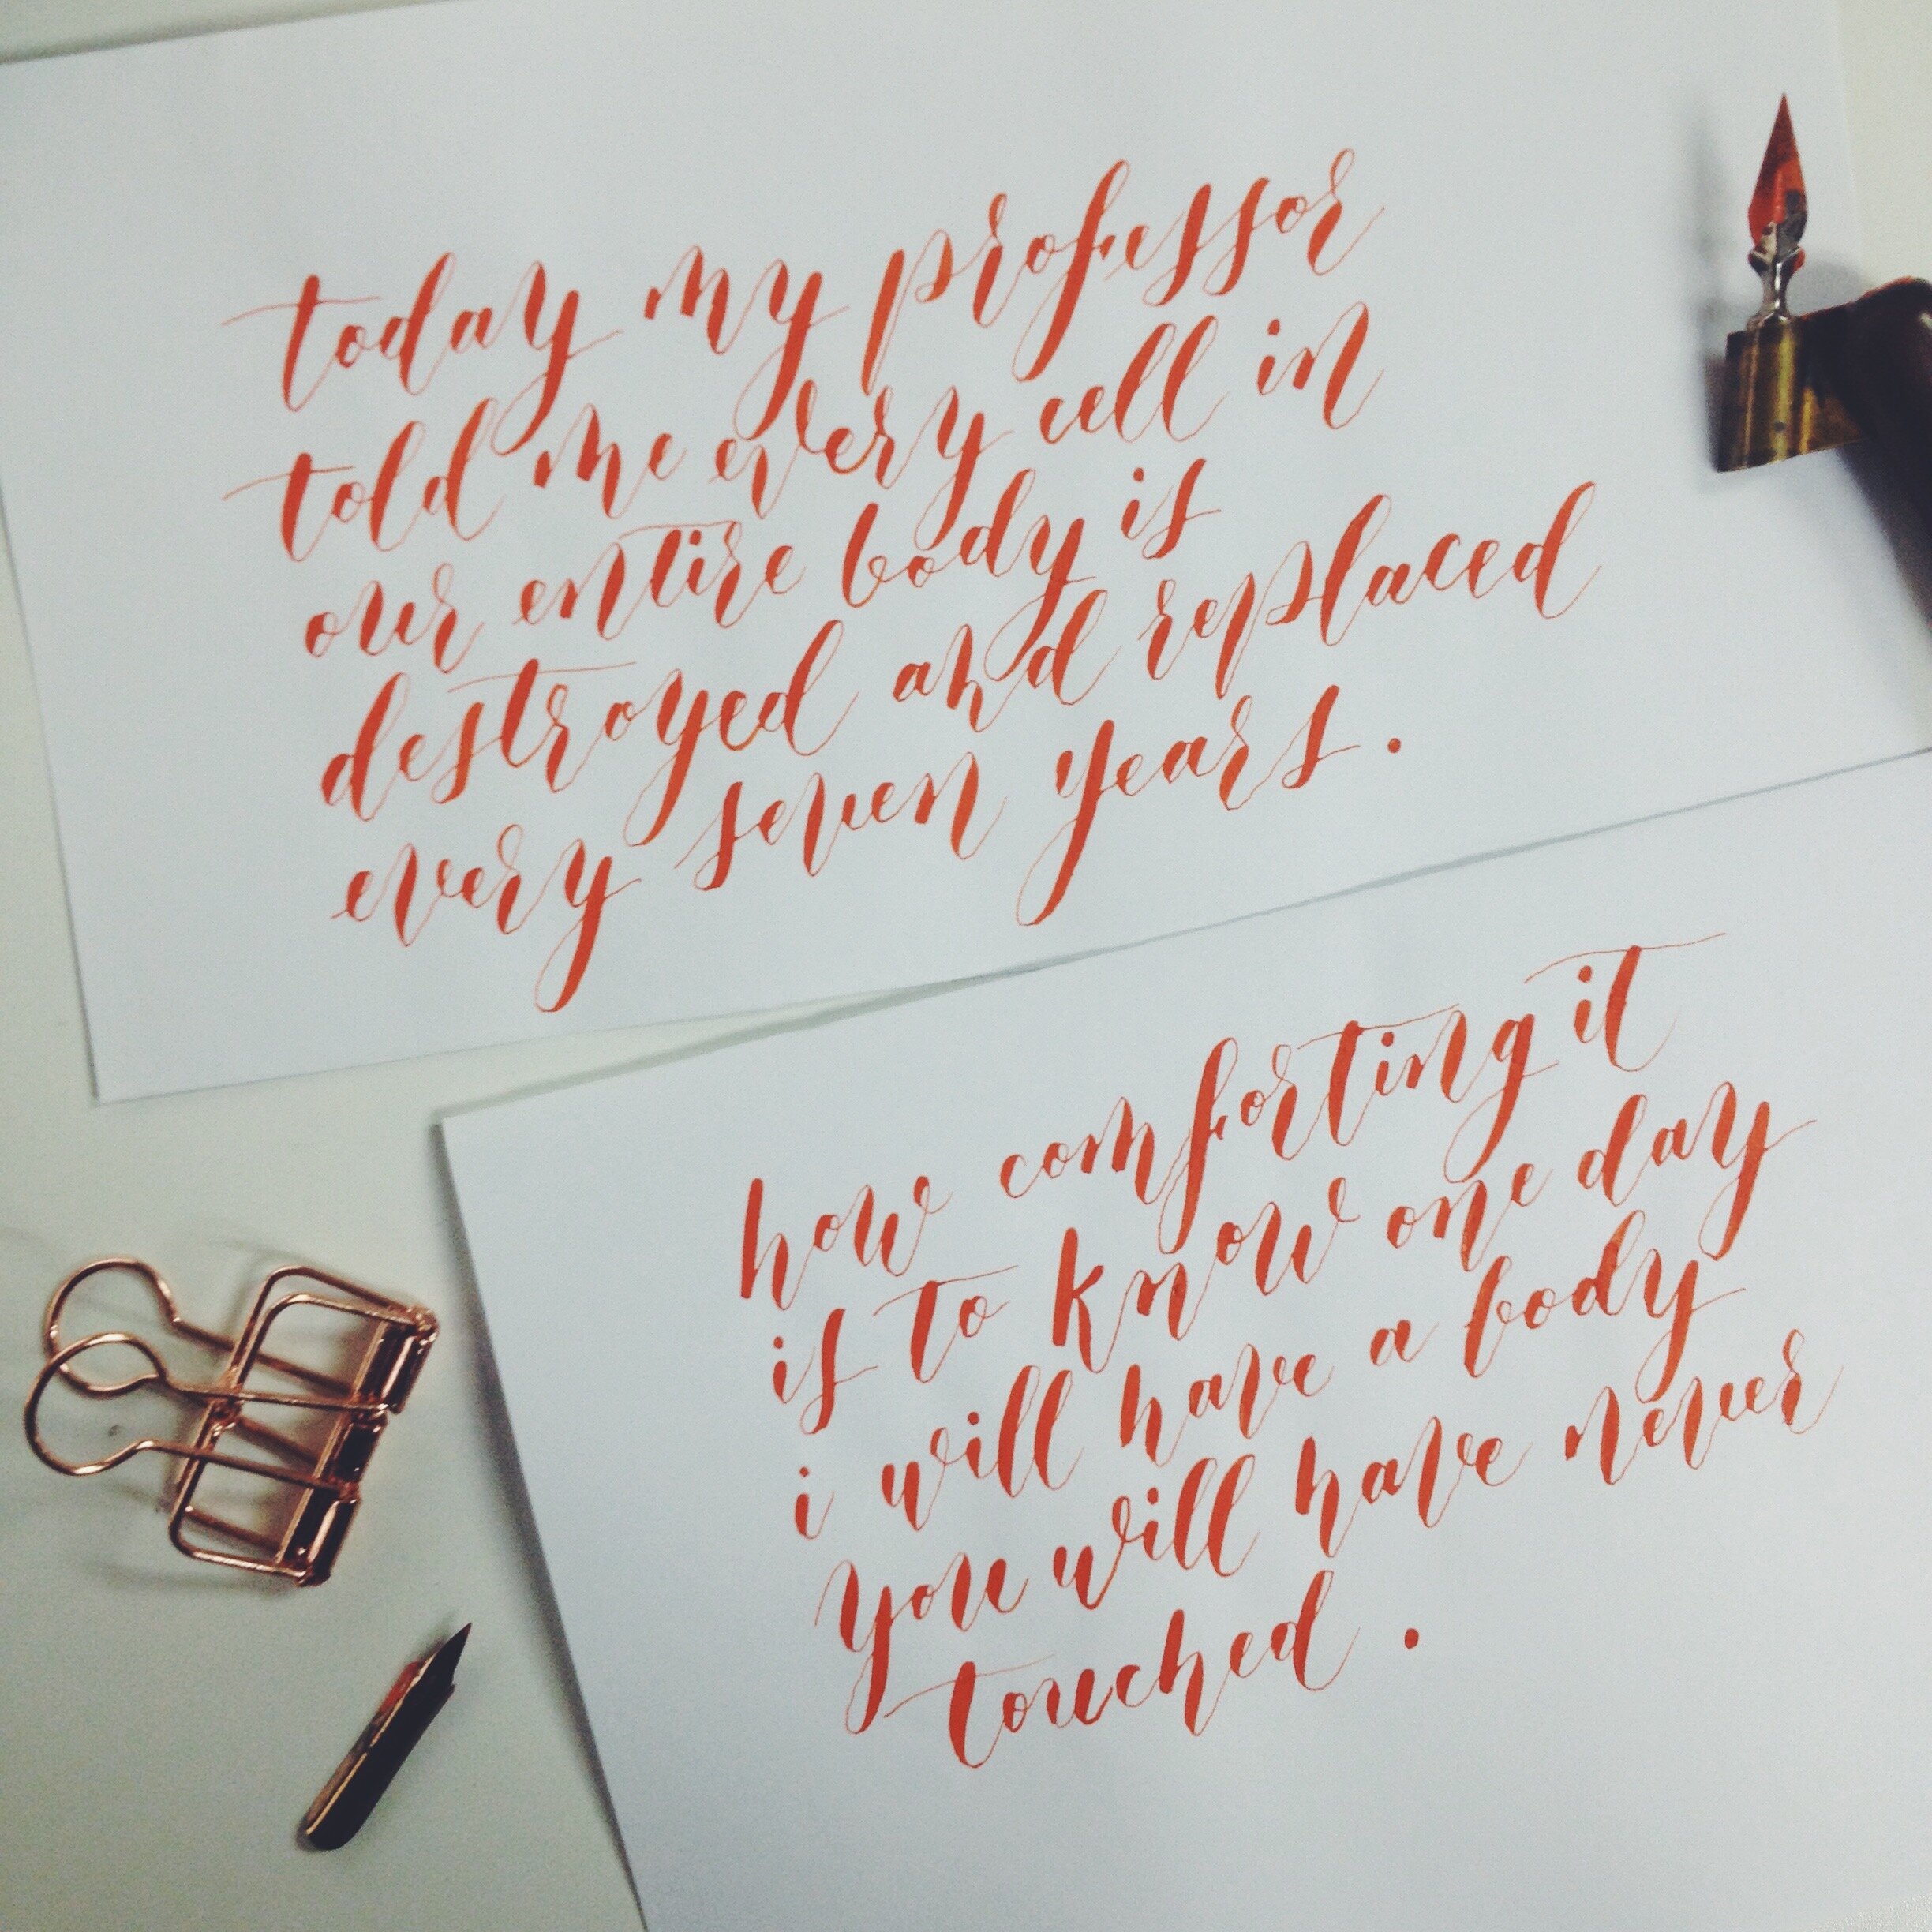 today my professor
told me every cell in
our entire body is
destroyed and replaced
every seven years.
how comforting it
is to know one day
i will have a body
you will have never
touched.